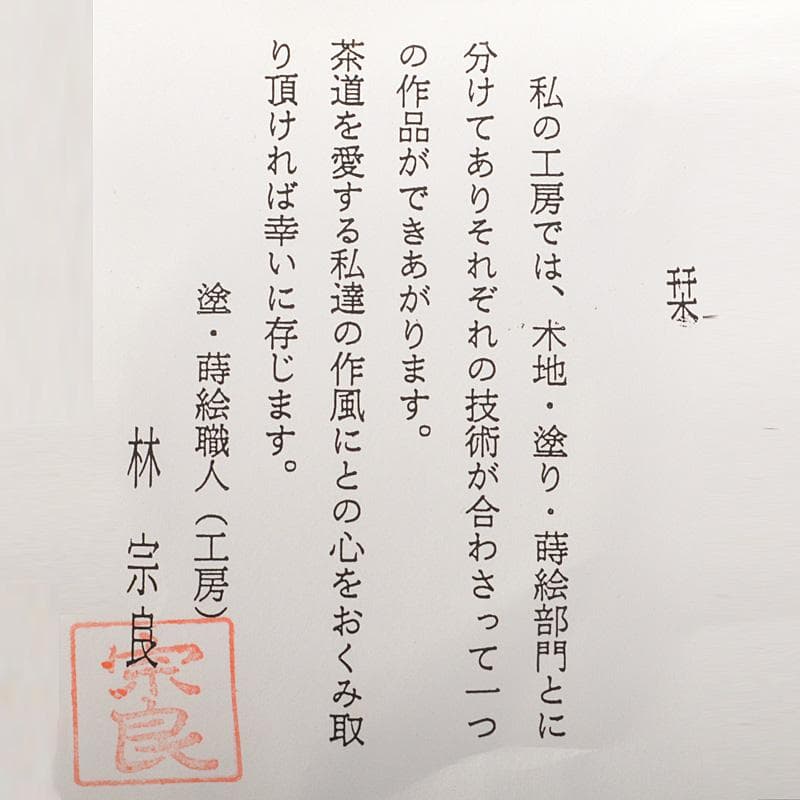 栞
私の工房では、木地・塗り・蒔絵部門とに
分けてありそれぞれの技術が合わさって一つ
の作品ができあがります。
茶道を愛する私達の作風にとの心をおくみ取
り頂ければ幸いに存じます。
塗・蒔絵職人（工房）
林 宗良
宗良